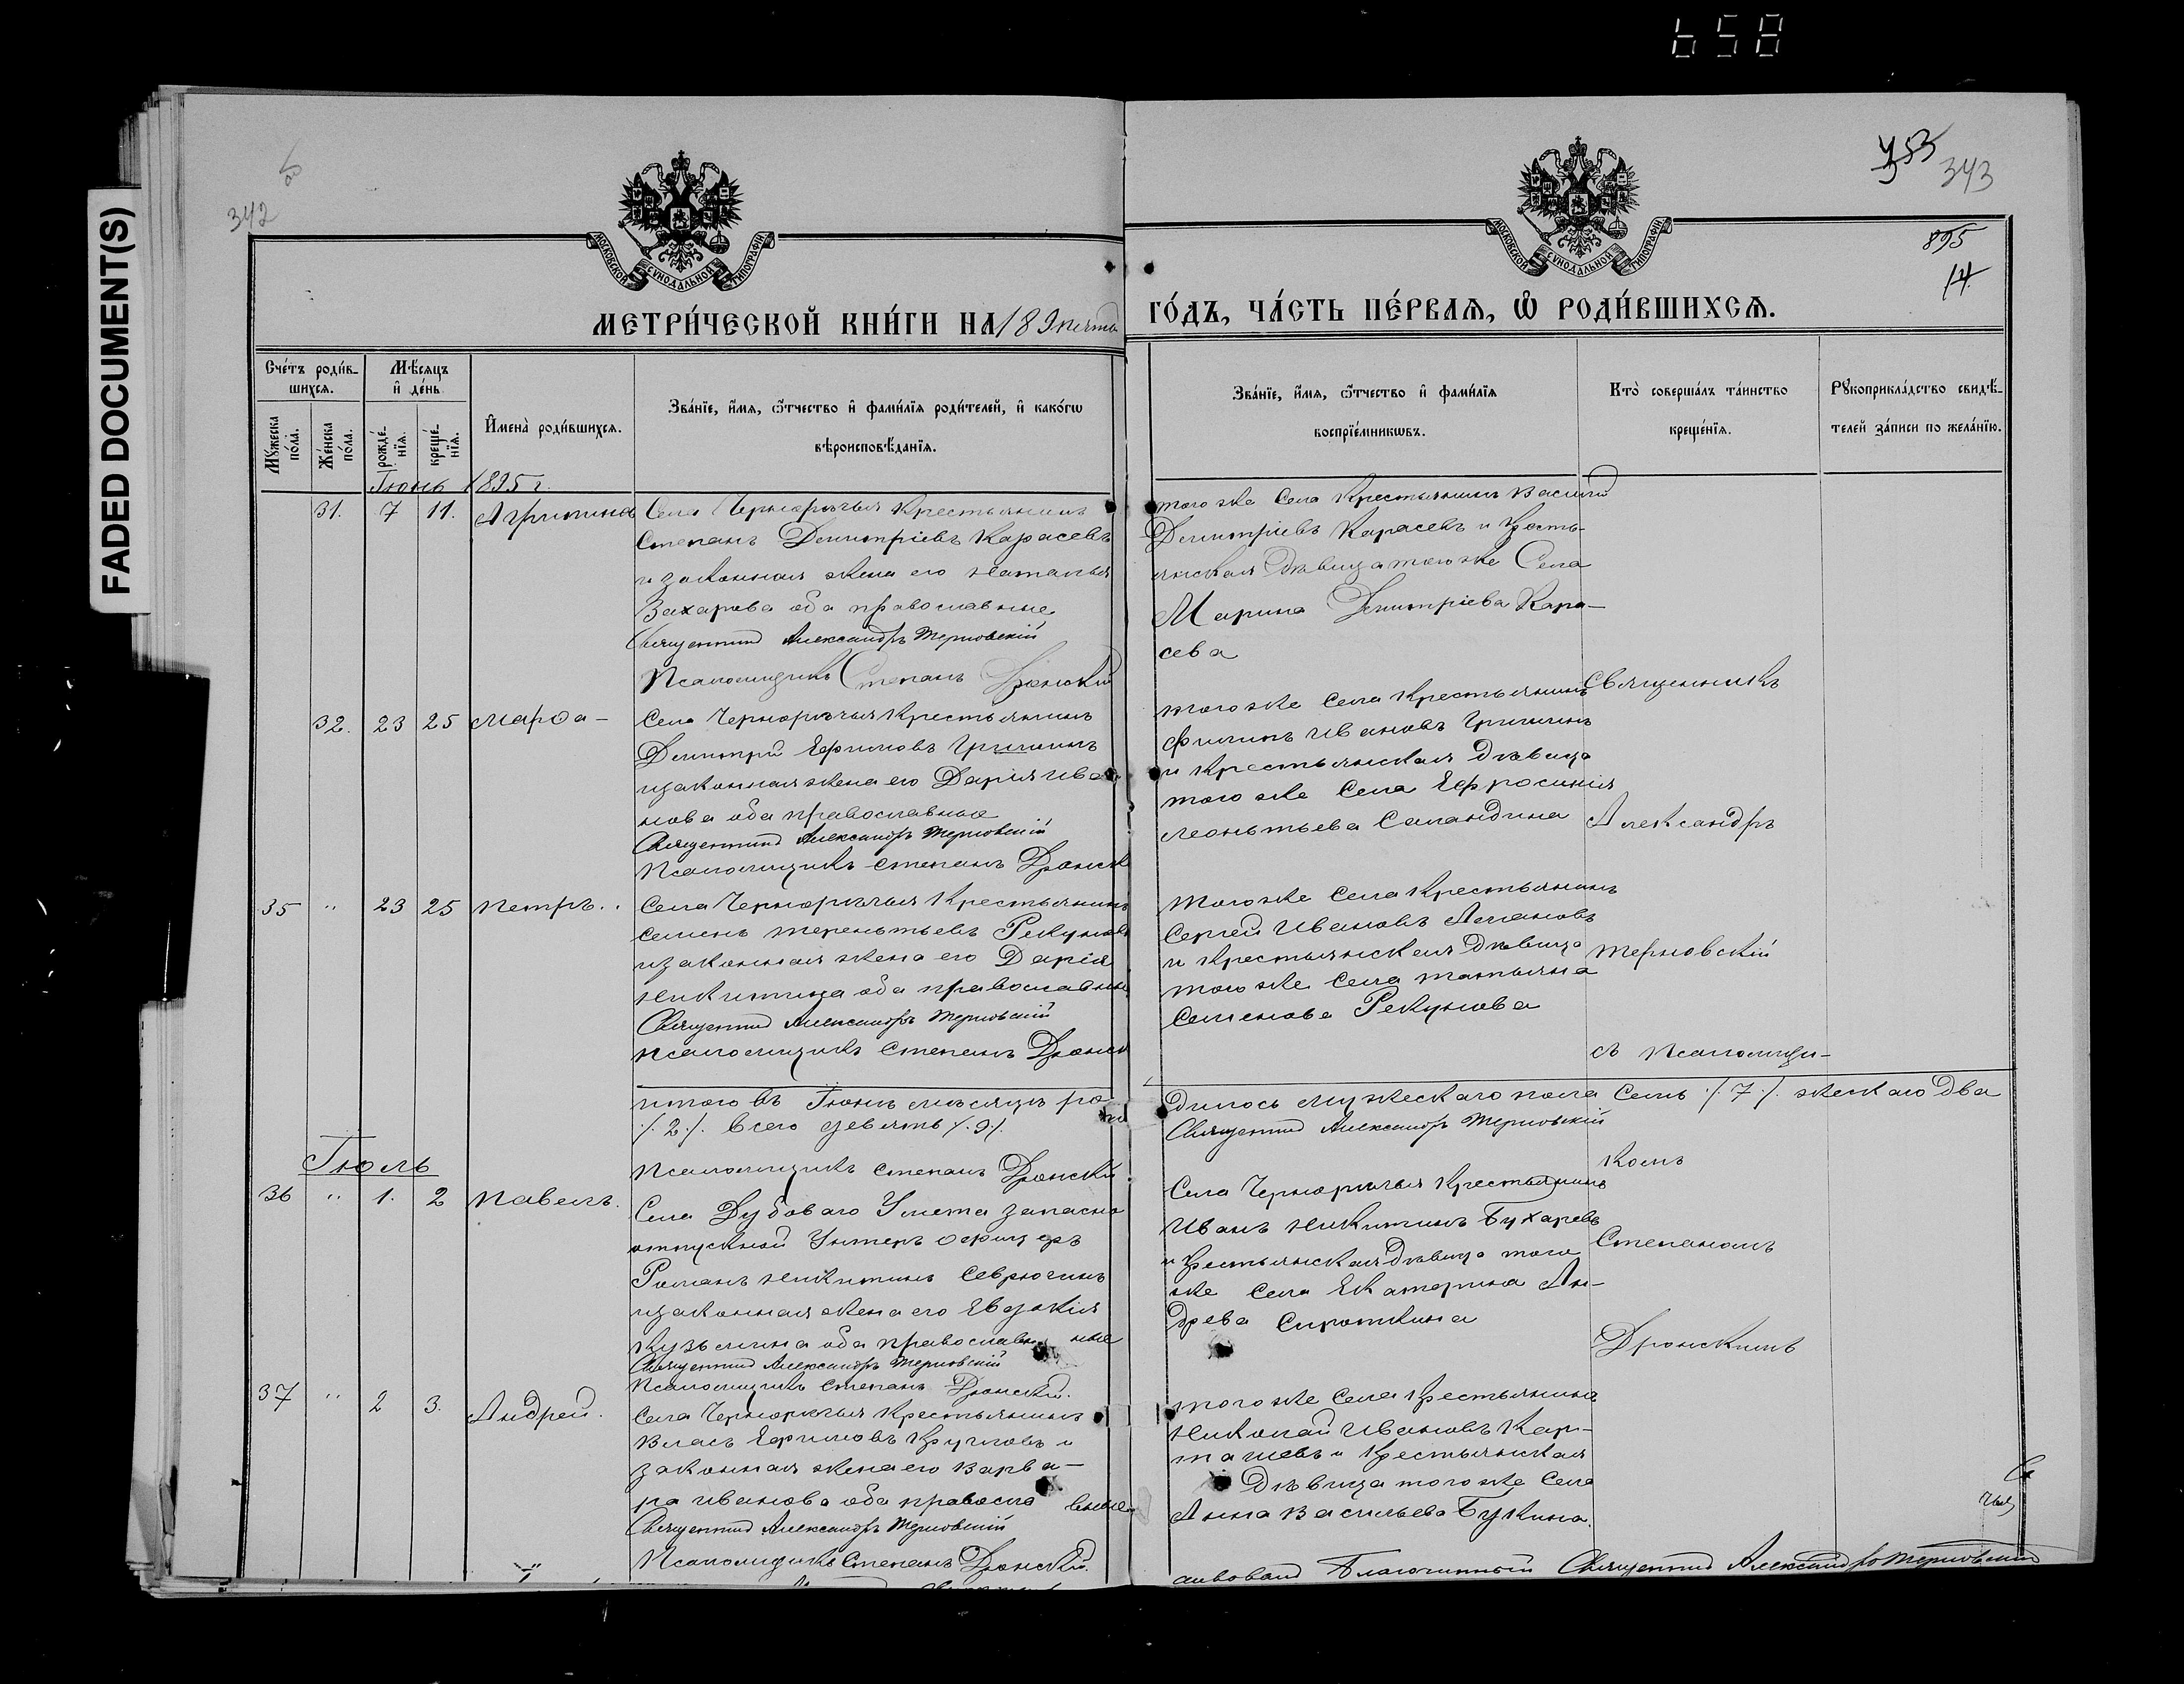 658
FADED DOCUMENT(S)
342
353
343
895
14
МОСКОВСКОЙ СѴНОДАЛЬНОЙ ТИПОГРАФІИ
МОСКОВСКОЙ СѴНОДАЛЬНОЙ ТИПОГРАФІИ
МЕТРИ́ЧЕСКОЙ КНИ́ГИ НА 189пять
ГО́ДЪ, ЧА́СТЬ ПЕ́РВАѦ, Ѡ҆ РОДИ́ВШИХСѦ.
Сче́тъ роди́в-
шихсѧ.
Мѣ́сѧцъ
и҆ де́нь
Мꙋ́жеска по́ла.
Же́нска по́ла.
рожде́-
нїѧ.
креще́-
нїѧ.
И҆мена̀ роди́вшихсѧ.
Зва́нїе, и҆́мѧ, ѻ҆́тчество и҆ фами́лїѧ роди́телей, и҆ како́гѡ
вѣроисповѣ́данїѧ.
Зва́нїе, и҆́мѧ, ѻ҆́тчество и҆ фами́лїѧ
воспрїе́мникѡвъ.
Кто̀ соверша́лъ та́инство
креще́нїѧ.
Рꙋкоприкла́дство свидѣ́-
телей за́писи по жела́нїю.
Іюнь 1895 г.
31. 7 11. Агрипина
Села Чернорѣчья крестьянинъ
Степанъ Димитріевъ Карасевъ
и законная жена его Наталья
Захарова оба православные
Священникъ Александръ Терновскій
Псаломщикъ Степанъ Дронскій
того же Села Крестьянинъ Василий
Димитріевъ Карасевъ и кресть-
янская дѣвица того же Села
Марина Димитріева Кара-
сева
32. 23 25 Марѳа -
Села Чернорѣчья крестьянинъ
Димитрій Ефимовъ Гришинъ
и законная жена его Дарія Ива
нова оба православные
Священникъ Александръ Терновскій
Псаломщикъ Степанъ Дронск
того же Села Крестьянинъ
Филипъ Ивановъ Гришинъ
и крестьянская дѣвица
того же Села Ефросинія
Леонтьева Саландина
35 " 23 25 Петръ.
Села Чернорѣчья Крестьянинъ
Семенъ Терентьевъ Рекуновъ
и законная жена его Дарія
Никитина оба православные
Священникъ Александръ Терновскій
Псаломщикъ Степанъ Дронск
Того же Села Крестьянинъ
Сергей Ивановъ
и крестьянская дѣвица
того же Села Татьяна
Семенова Рекунова
Священникъ
Александръ
Терновскій
съ Псаломщи-
комъ
Степаномъ
Дронскимъ
итого въ Іюнѣ мѣсяцѣ ро
дилось мужескаго пола Семь /.7./. женскаго два
/.2./. Всего девять /.9./.
Священникъ Александръ Терновскій
Псаломщикъ Степанъ Дронскій
Іюль
36 " 1. 2 Павелъ.
Села Дубоваго Умета запасно
отпускной Унтеръ офицеръ
Романъ Никитинъ Севрюгинъ
и законная жена его Евдокія
Кузьмина оба православные
Священникъ Александръ Терновскій
Псаломщикъ Степанъ Дронскій.
Села Чернорѣчья Крестьянинъ
Иванъ Никитинъ Бухаревъ
и крестьянская дѣвица того
же Села Екатерина Ан-
древа Сироткина
37 " 2 3. Андрей.
Села Чернорѣчья Крестьянинъ
Власъ Ефимовъ Кругловъ и
законная жена его Варва-
ра Иванова оба православные
Священникъ Александръ Терновскій
Псаломщикъ Степанъ Дронскій.
того же Села Крестьянинъ
Николай Ивановъ Кар-
ташевъ и Крестьянская
дѣвица того же Села
Анна Васильева Букина.
Благочинный Священникъ Александръ Терновскій